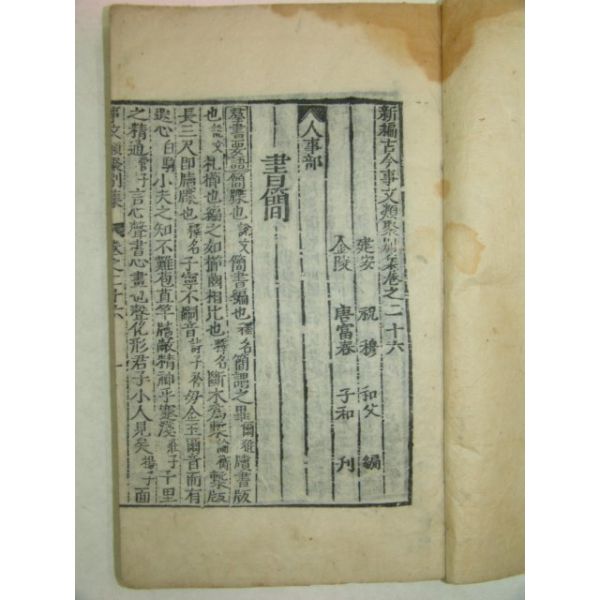 新編古今事文類聚別集卷之二十六
建安 祝穆 和父 編
金陵 唐富春 子和 刊
人事部
書簡
羣書要語簡牒也說文簡書編也釋名簡謂之畢爾雅牘書版
也說文札櫛也編之如櫛齒相比也釋名斷木爲槧論衡槧版
長三尺即牘牒也釋名子寧不嗣音詩子衿毋金玉爾音而有
遐心白駒小夫之知不離苞苴竿牘敝精神乎蹇淺莊子千里
之精通管子言心聲書心畫也聲化形君子小人見矣揚子面
事文類聚別集 卷之二十六 一